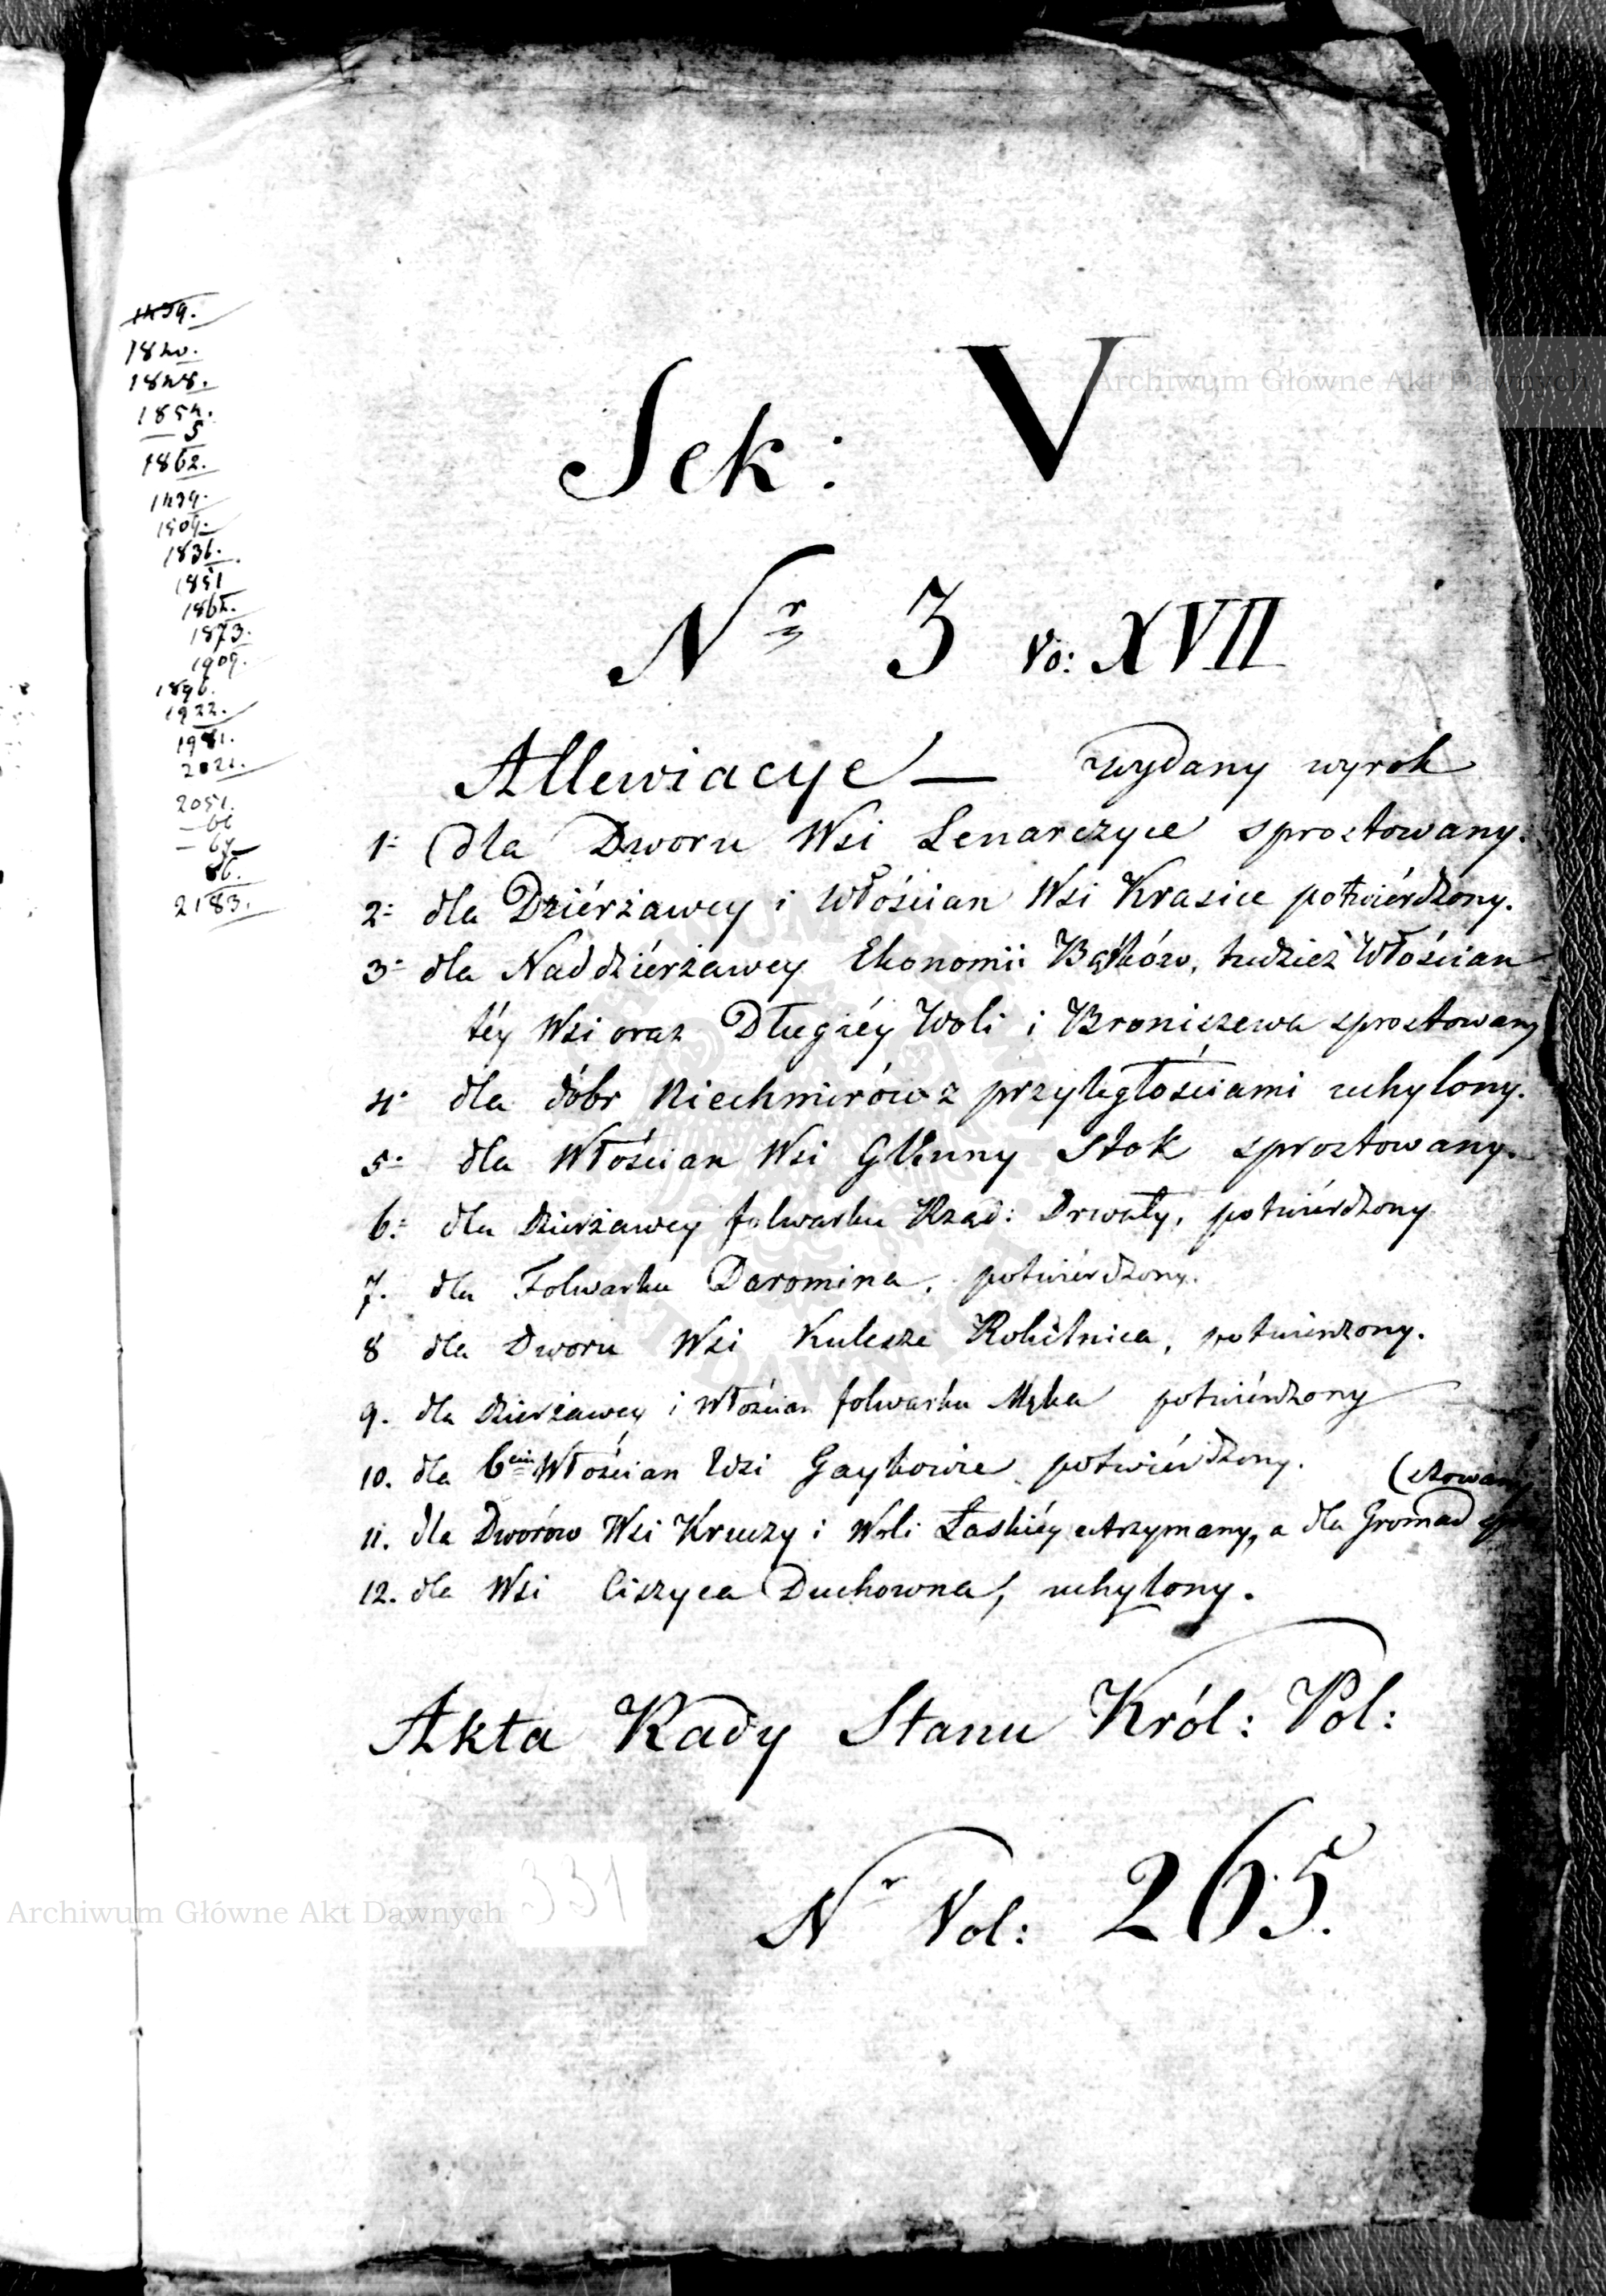 1820.
1828.
1854.
— 5
1862.
1909.
1836.
1851
1862.
1873.
1909.
1896.
1922.
1981.
2021.
2051.
— 66
— 67
86.
2183.
Sek: V
Nr 3 Vo: XVII
Allewiacye — wydany wyrok
1. (dla Dworu Wsi Lenarczyce sprostowany.
2. dla Dziérżawcy i Włościan Wsi Krasice potwiérdzony.
3. dla Naddziérżawcy Ekonomii Bąków, tudzież Włościan
téy Wsi oraz Długiéy Woli i Broniszewa sprostowany
4. dla dóbr Niechmirów z przyległościami uchylony.
5. dla Włościan Wsi Glinny Stok sprostowany.
6. dla Dzierżawcy folwarku Rząd: Drwały, potwiérdzony
7. dla Folwarku Daromina, potwiérdzony.
8 dla Dworu Wsi Kulesze Rokitnica, potwierdzony.
9. dla Dzierżawcy i Włościan folwarku Męka potwiérdzony
10. dla 6ciu Włościan Wsi Gaykowice potwiérdzony.
(stowany
11. dla Dworów Wsi Kruczy i Woli Łaskiéy utrzymany, a dla Gromad spro
12. dla Wsi Ciszyca Duchowna, uchylony.
Akta Rady Stanu Król: Pol:
331
Nr Vol: 265.
Archiwum Główne Akt Dawnych
Archiwum Główne Akt Dawnych